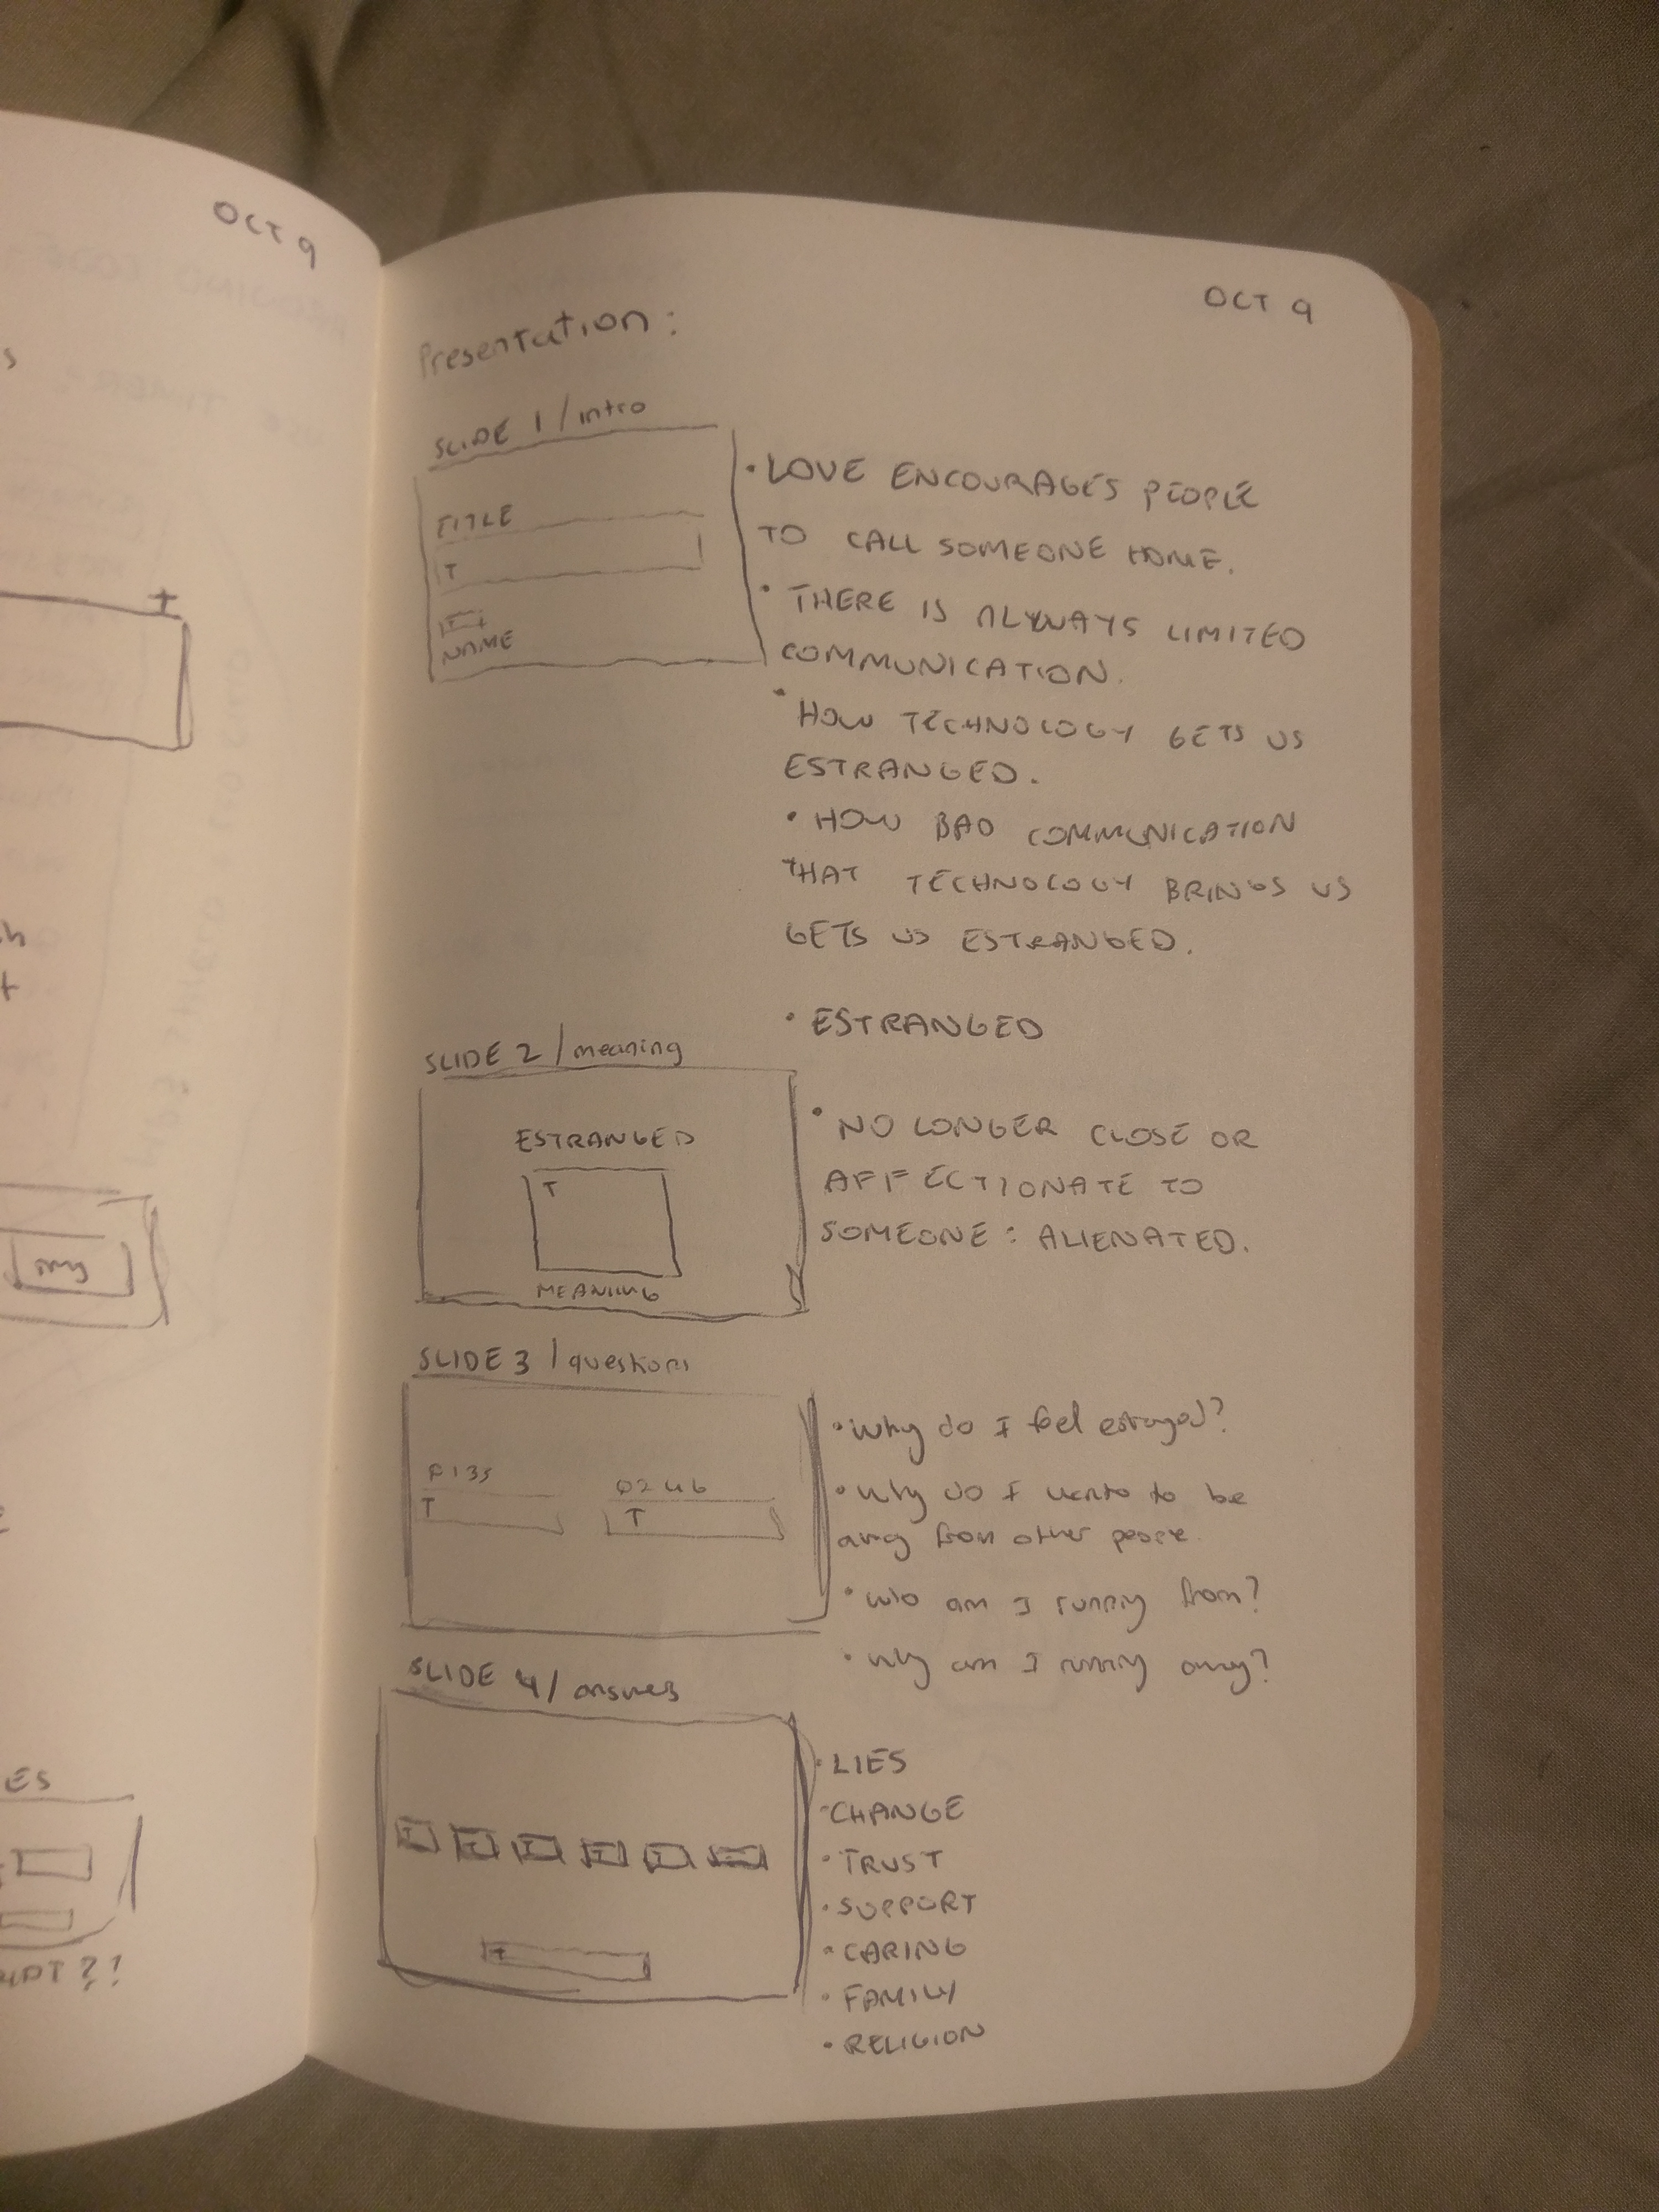 OCT 9
s
+
h
+
my
ES
?!
OCT 9
Presentation:
SLIDE 1 / intro
TITLE
T
T
NAME
• LOVE ENCOURAGES PEOPLE
TO CALL SOMEONE HOME.
• THERE IS ALWAYS LIMITED
COMMUNICATION.
• HOW TECHNOLOGY GETS US
ESTRANGED.
• HOW BAD COMMUNICATION
THAT TECHNOLOGY BRINGS US
GETS US ESTRANGED.
• ESTRANGED
SLIDE 2 / meaning
ESTRANGED
T
MEANING
• NO LONGER CLOSE OR
AFFECTIONATE TO
SOMEONE : ALIENATED.
SLIDE 3 / questions
135
T
Q246
T
• Why do I feel estranged?
• Why do I want to be
away from other people
• who am I running from?
• why am I running away?
SLIDE 4 / answers
T T T T T
T
• LIES
• CHANGE
• TRUST
• SUPPORT
• CARING
• FAMILY
• RELIGION